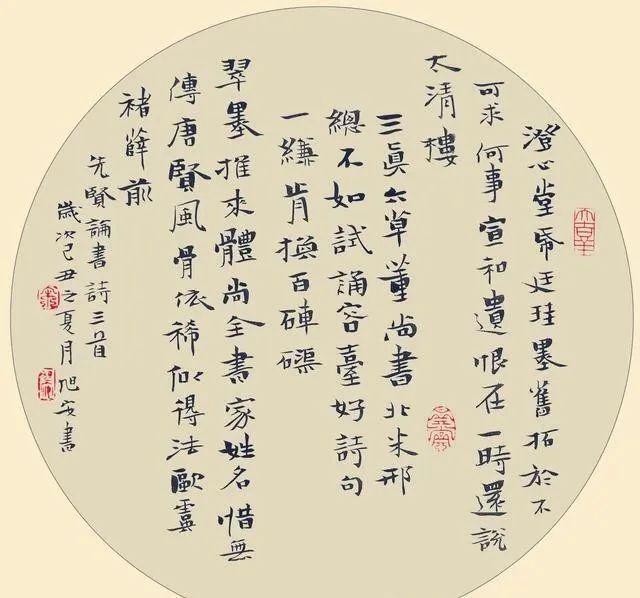 澄心堂帋廷珪墨舊拓於不
可求何事宣和遺恨在一時還說
太清樓
三眞六草董尚書北米邢
總不如試誦容臺好詩句
一縑肯換百硨磲
翠墨推來體尚全書家姓名惜無
傳唐賢風骨依稀似得法歐虞
褚薛前
先賢論書詩三首
歲次己丑之夏月旭安書